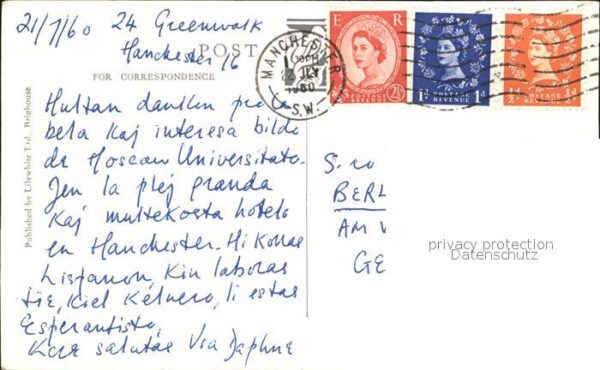 21/7/60 24 Greenwalk
Manchester 16
POST
FOR CORRESPONDENCE
Multan dankon pro la
bela kaj interesa bildo
de Moscow Universitato.
Jen la plej granda
kaj multekosta hotelo
en Manchester. Mi konas
hispanon, kiu laboras
tie, kiel kelnero, li estas
Esperantisto,
Kore salutas Via Daphne
Published by Lilywhite Ltd., Brighouse
MANCHESTER
JLY
1960
S.W.
E R
POSTAGE
REVENUE
2½
POSTAGE
REVENUE
1d 1d
POSTAGE
REVENUE
½d ½d
S-ro
BERL
AM
GE
privacy protection
Datenschutz